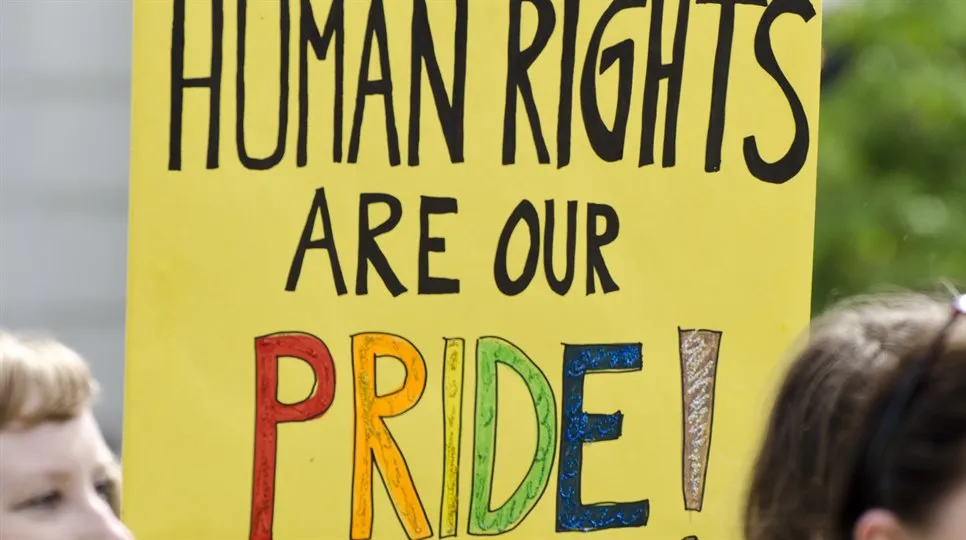 HUMAN RIGHTS
ARE OUR
PRIDE!